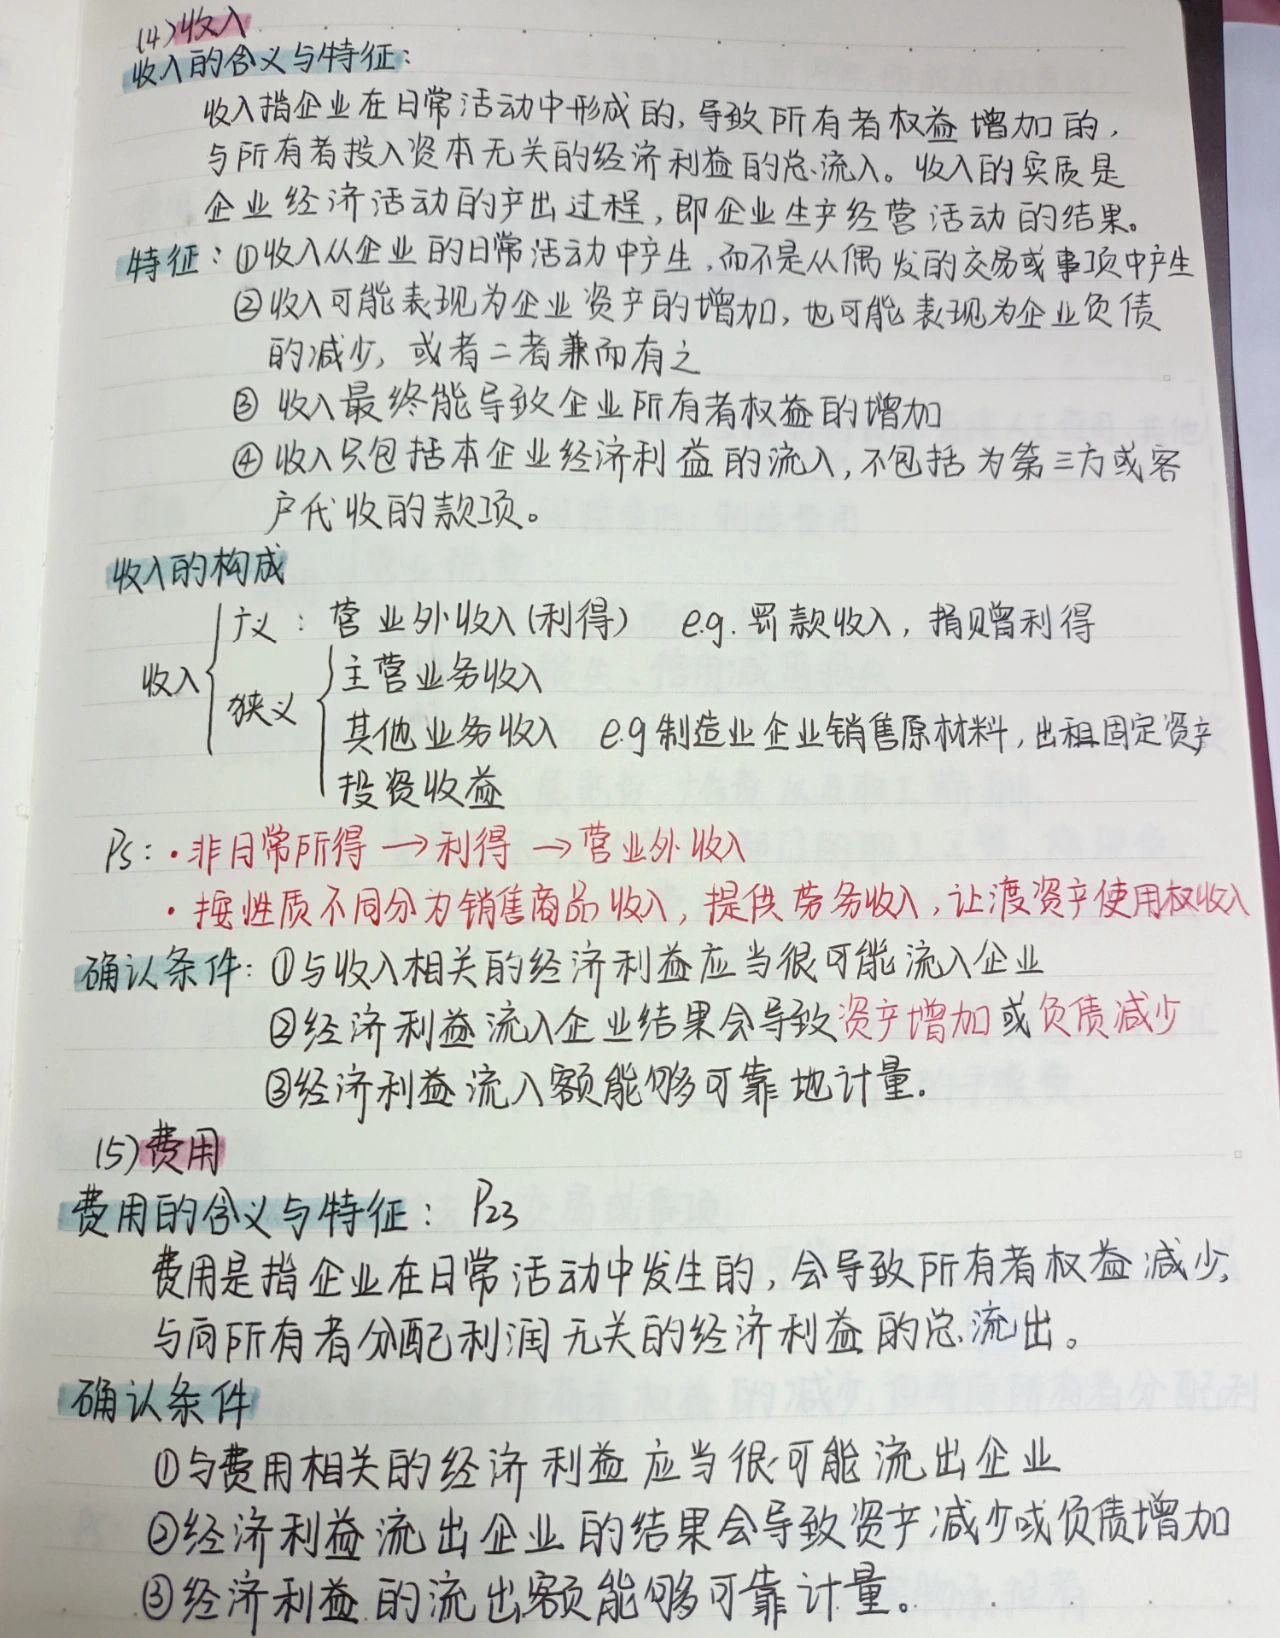 (4)收入
收入的含义与特征:
收入指企业在日常活动中形成的,导致所有者权益增加的,
与所有者投入资本无关的经济利益的总流入。收入的实质是
企业经济活动的产出过程,即企业生产经营活动的结果。
特征:①收入从企业的日常活动中产生,而不是从偶发的交易或事项中产生
②收入可能表现为企业资产的增加,也可能表现为企业负债
的减少,或者二者兼而有之
③收入最终能导致企业所有者权益的增加
④收入只包括本企业经济利益的流入,不包括为第三方或客
户代收的款项。
收入的构成
广义:营业外收入(利得) e.g.罚款收入,捐赠利得
收入
主营业务收入
狭义
其他业务收入 e.g制造业企业销售原材料,出租固定资产
投资收益
Ps:·非日常所得→利得→营业外收入
·按性质不同分为销售商品收入,提供劳务收入,让渡资产使用权收入
确认条件:①与收入相关的经济利益应当很可能流入企业
②经济利益流入企业结果会导致资产增加或负债减少
③经济利益流入额能够可靠地计量.
(5)费用
费用的含义与特征: P23
费用是指企业在日常活动中发生的,会导致所有者权益减少,
与向所有者分配利润无关的经济利益的总流出。
确认条件
①与费用相关的经济利益应当很可能流出企业
②经济利益流出企业的结果会导致资产减少或负债增加
③经济利益的流出额能够可靠计量。